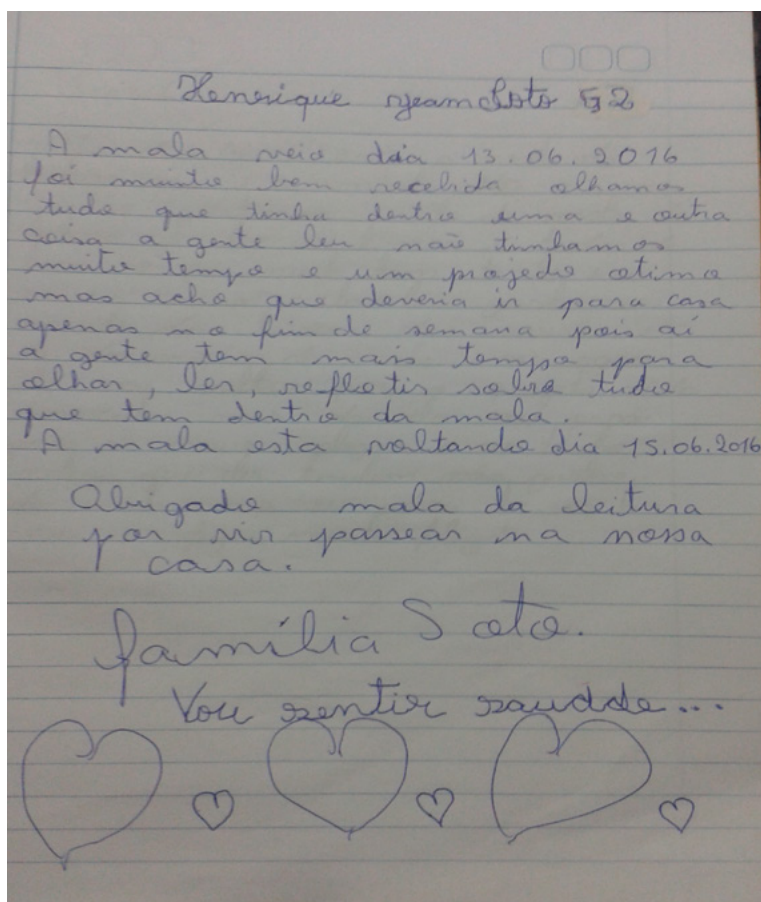 Henrique Soto G2
A mala veio dia 13.06.2016
foi muinto bem recebida olhamos
tudo que tinha dentro uma e outra
coisa a gente leu não tinhamos
muito tempo e um projedo otimo
mas acho que deveria ir para casa
apenas no fim de semana pois aí
a gente tem mais tempo para
olhar, ler, refletir sobre tudo
que tem dentro da mala.
A mala esta voltando dia 15.06.2016
Obrigado mala da leitura
por vir passear na nossa
casa.
família Soto.
Vou sentir saudde...